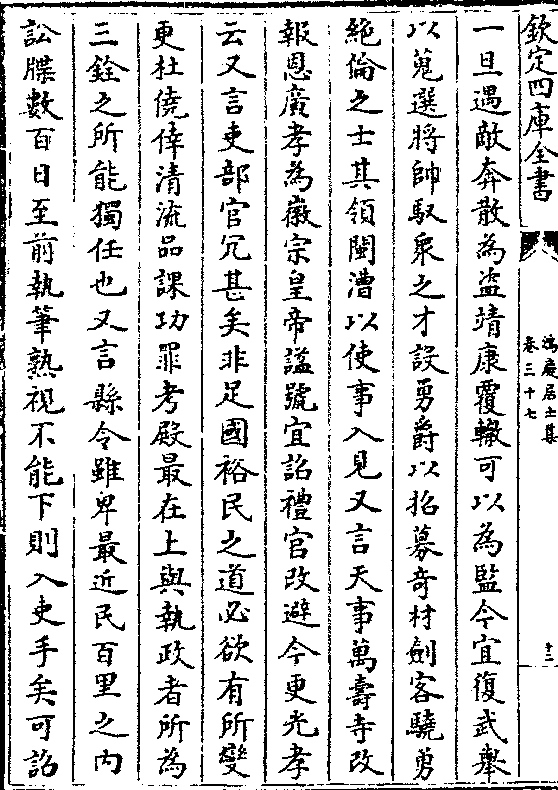 欽定四庫全書
鴻慶居士集
卷三十七
十三
一旦遇敵奔散為盗靖康覆轍可以為監今宜復武舉
以蒐選將帥馭衆之才設勇爵以招募奇材劍客驍勇
絶倫之士其領閩漕以使事入見又言天事萬壽寺改
報恩廣孝為徽宗皇帝諡號宜詔禮官改避今更光孝
云又言吏部官冗甚矣非足國裕民之道必欲有所變
更杜僥倖清流品課功罪考殿最在上與執政者所為
三銓之所能獨任也又言縣令雖卑最近民百里之内
訟牒數百日至前執筆熟視不能下則入吏手矣可詔